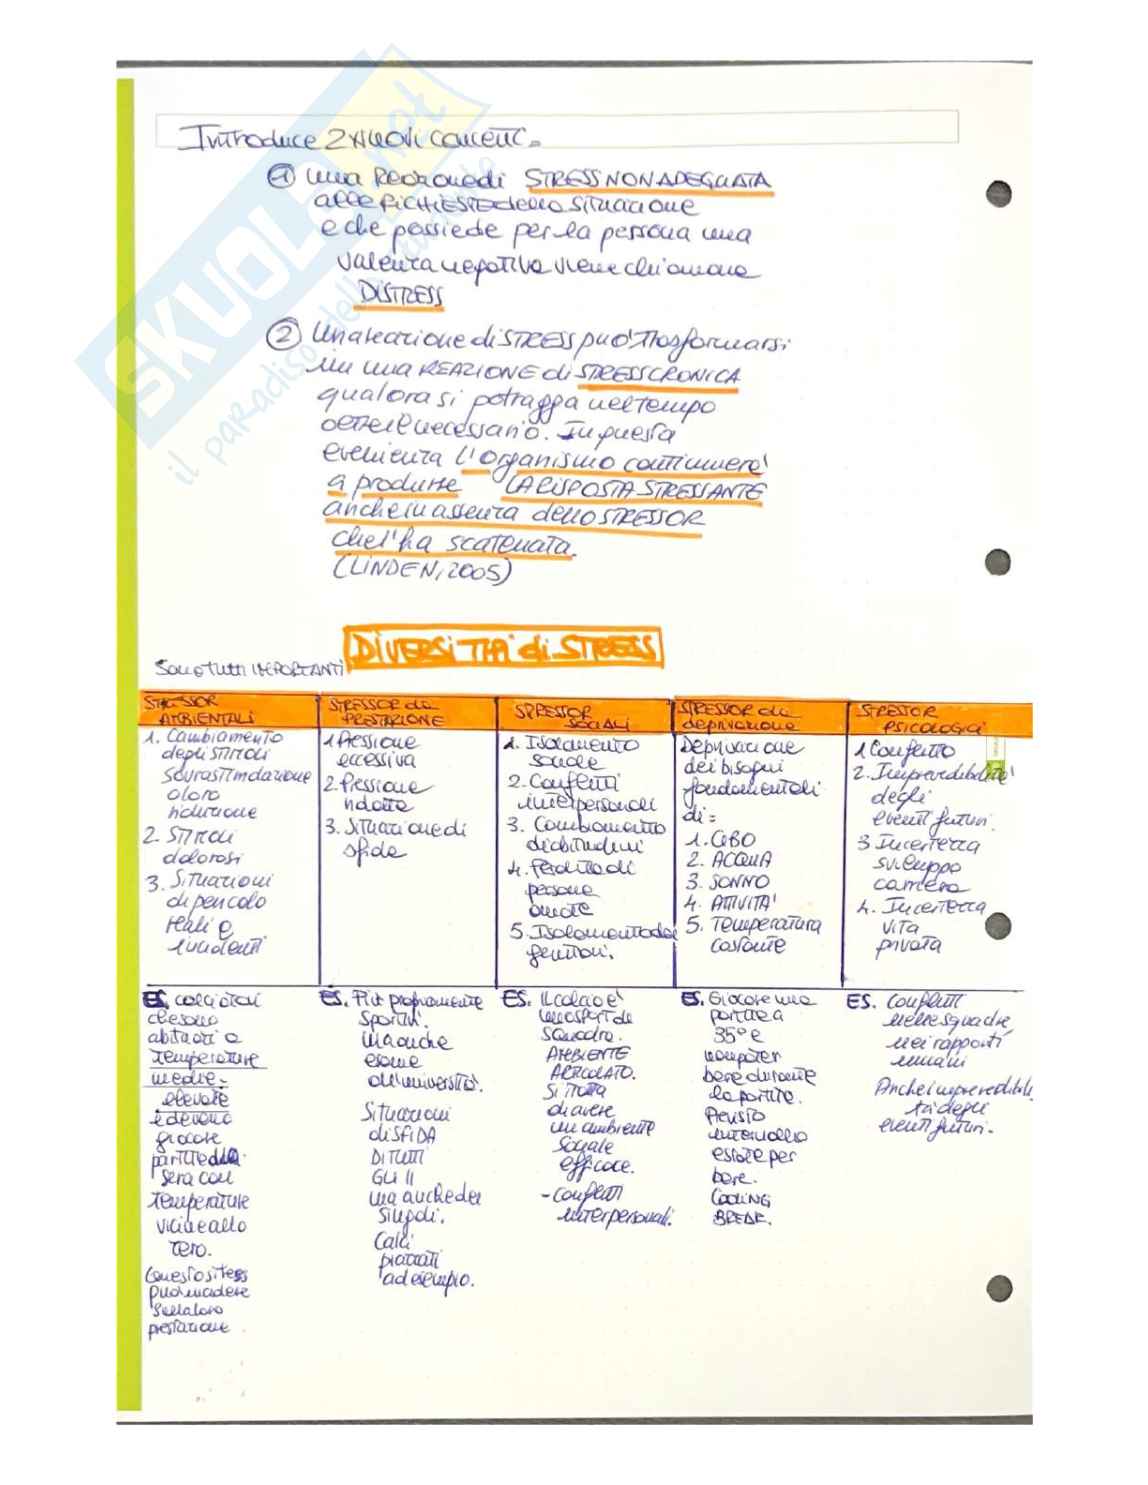 Introduce 2 nuovi concetti:
① una Reazione di STRESS NON ADEGUATA
alle RICHIESTE della SITUAZIONE
e che possiede per la persona una
valenza negativa viene chiamata
DISTRESS
② Una reazione di STRESS può trasformarsi
in una REAZIONE di STRESS CRONICA
qualora si protragga nel tempo
oltre il necessario. In questa
evenienza l'organismo continuerà
a produrre LA RISPOSTA STRESSANTE
anche in assenza dello STRESSOR
che l'ha scatenata.
(LINDEN, 2005)
DIVERSITÀ di STRESS
Sono tutti IMPORTANTI
STRESSOR
AMBIENTALI
1. Cambiamento
degli stimoli
sovrastimolazione
o loro
riduzione
2. Stimoli
dolorosi
3. Situazioni
di pericolo
reali e
incidenti
STRESSOR da
PRESTAZIONE
1 Pressione
eccessiva
2. Pressione
ridotta
3. Situazione di
sfida
STRESSOR
SOCIALI
1. Isolamento
sociale
2. Conflitti
interpersonali
3. Cambiamento
di abitudini
4. Perdita di
persone
amate
5. Isolamento dai
genitori.
STRESSOR da
deprivazione
Deprivazione
dei bisogni
fondamentali
di:
1. CIBO
2. ACQUA
3. SONNO
4. ATTIVITÀ
5. Temperatura
costante
STRESSOR
PSICOLOGICI
1 Conflitto
2. Imprevedibilità
degli
eventi futuri.
3 Incertezza
sviluppo
carriera
4. Incertezza
vita
privata
ES. calciatori
che sono
abituati a
temperature
medie-
elevate
e devono
giocare
partite della
sera con
temperature
vicine allo
zero.
Questo stress
può incidere
sulla loro
prestazione
ES. Più propriamente
sportivi.
ma anche
esame
all'università.
Situazioni
di SFIDA
DI TUTTI
GLI 11
ma anche dei
singoli.
Calci
piazzati
ad esempio.
ES. Il calcio è
uno sport di
squadra.
AMBIENTE
ARTICOLATO.
Si tratta
di avere
un ambiente
sociale
efficace.
- conflitti
interpersonali.
ES. Giocare una
partita a
35° e
non poter
bere durante
la partita.
Previsto
intervallo
estate per
bere.
COOLING
BREAK.
ES. Conflitti
nelle squadre,
nei rapporti
umani
Anche imprevedibili
tà degli
eventi futuri.
SKUOLA.net
il paradiso dello studente